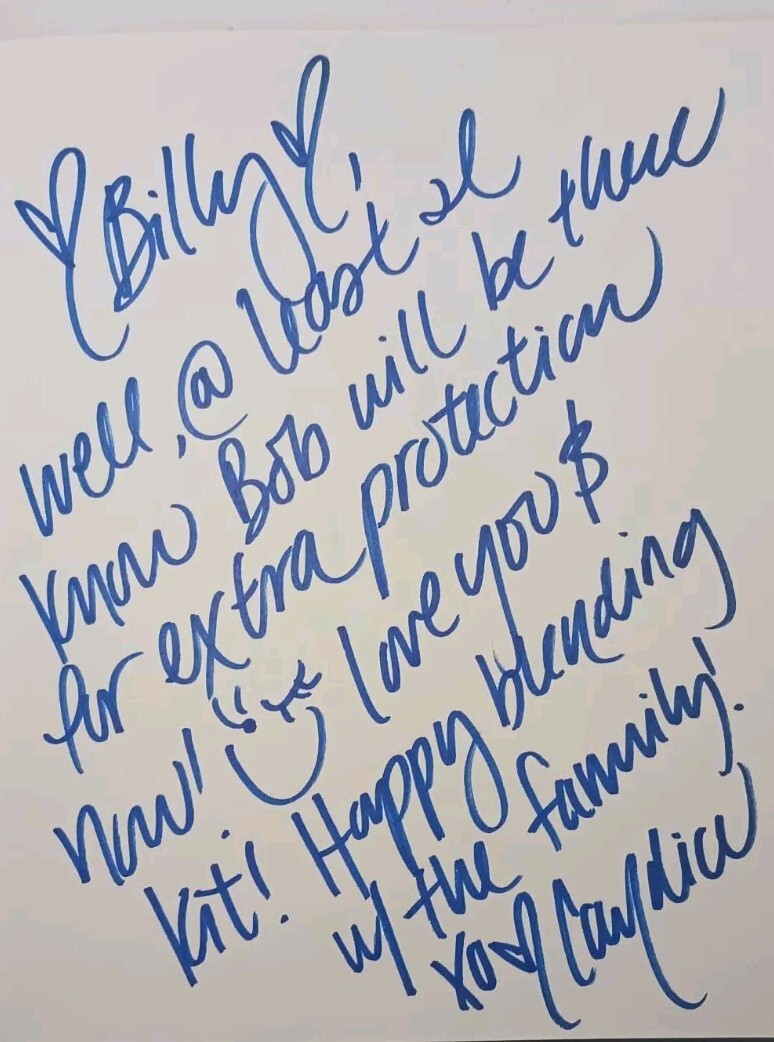 ♡ Billy ♡,
well, @ least I
know Bob will be there
for extra protection
now! love you $
Kit! Happy blending
w/ the family!
xo♡ Candice